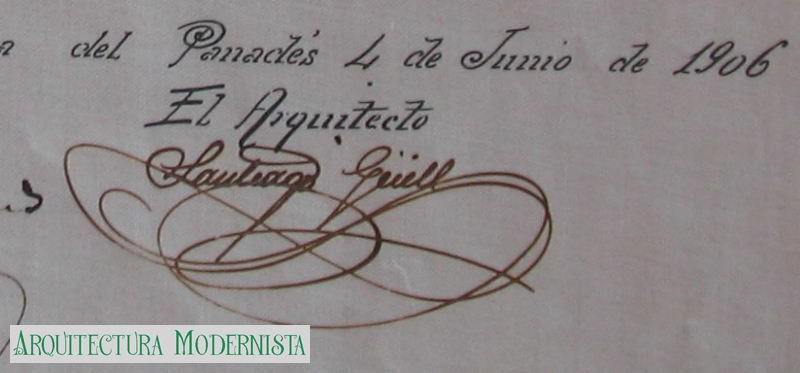 del Panadés 4 de Junio de 1906
El Arquitecto
Santiago Güell
ARQUITECTURA MODERNISTA